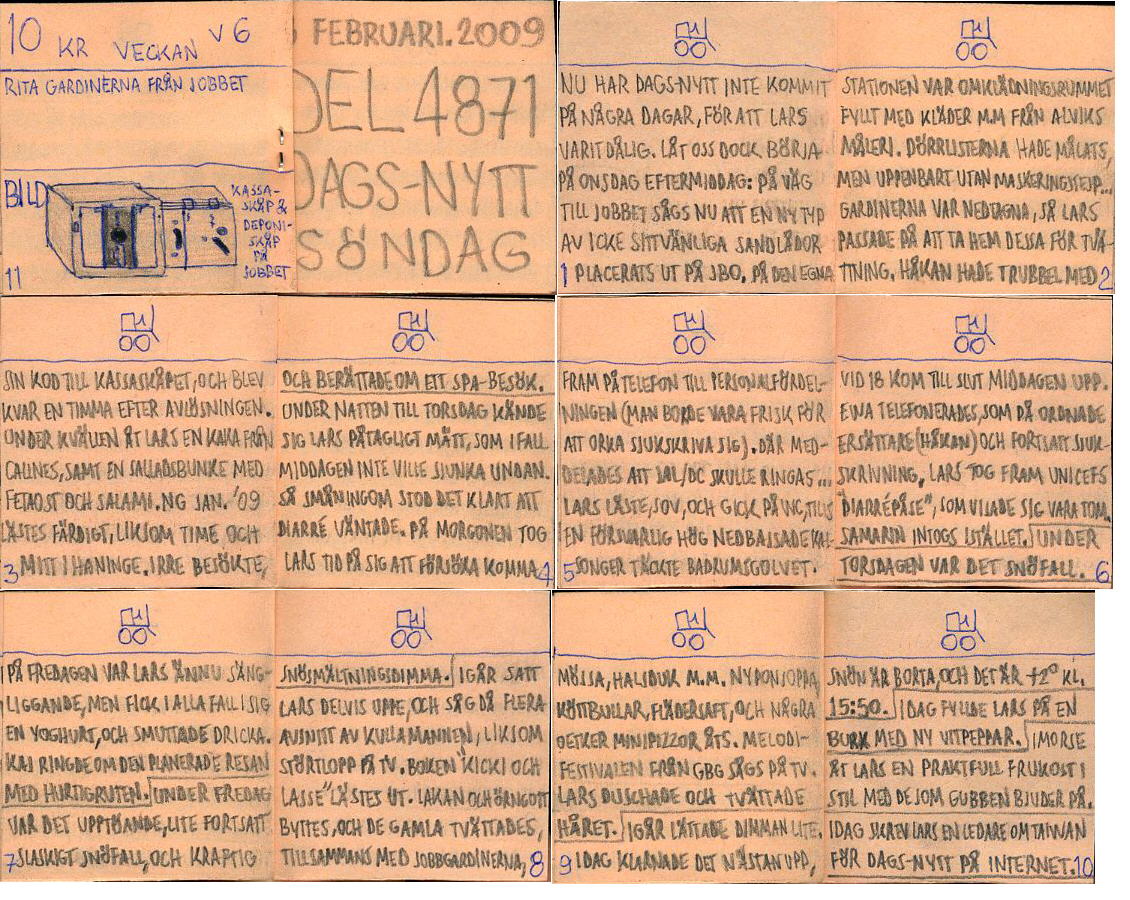 10 KR VECKAN V 6
RITA GARDINERNA FRÅN JOBBET
BILD
KASSA-
SKÅP &
DEPONI-
SKÅP
PÅ
JOBBET
11
FEBRUARI.2009
DEL 4871
DAGS-NYTT
SÖNDAG
NU HAR DAGS-NYTT INTE KOMMIT
PÅ NÅGRA DAGAR, FÖR ATT LARS
VARIT DÅLIG. LÅT OSS DOCK BÖRJA
PÅ ONSDAG EFTERMIDDAG: PÅ VÄG
TILL JOBBET SÅGS NU ATT EN NY TYP
AV ICKE SITTVÄNLIGA SANDLÅDOR
1 PLACERATS UT PÅ JBO. PÅ DEN EGNA
STATIONEN VAR OMKLÄDNINGSRUMMET
FYLLT MED KLÄDER M.M FRÅN ALVIKS
MÅLERI. DÖRRLISTERNA HADE MÅLATS,
MEN UPPENBART UTAN MASKERINGSTEJP...
GARDINERNA VAR NEDTAGNA, SÅ LARS
PASSADE PÅ ATT TA HEM DESSA FÖR TVÄ-
TTNING. HÅKAN HADE TRUBBEL MED 2
SIN KOD TILL KASSASKÅPET, OCH BLEV
KVAR EN TIMMA EFTER AVLÖSNINGEN.
UNDER KVÄLLEN ÅT LARS EN KAKA FRÅN
CALINES, SAMT EN SALLADSBUNKE MED
FETAOST OCH SALAMI. NG JAN. '09
LÄSTES FÄRDIGT, LIKSOM TIME OCH
3 MITT I HANINGE. IRRE BESÖKTE,
OCH BERÄTTADE OM ETT SPA-BESÖK.
UNDER NATTEN TILL TORSDAG KÄNDE
SIG LARS PÅTAGLIGT MÄTT, SOM IFALL
MIDDAGEN INTE VILLE SJUNKA UNDAN.
SÅ SMÅNINGOM STOD DET KLART ATT
DIARRE VÄNTADE. PÅ MORGONEN TOG
LARS TID PÅ SIG ATT FÖRSÖKA KOMMA 4
FRAM PÅ TELEFON TILL PERSONALFÖRDEL-
NINGEN (MAN BORDE VARA FRISK FÖR
ATT ORKA SJUKSKRIVA SIG). DÄR MED-
DELADES ATT JAL/DC SKULLE RINGAS...
LARS LÄSTE, SOV, OCH GICK PÅ WC, TILLS
EN FÖRSVARLIG HÖG NEDBAJSADE KAL-
5 SONGER TÄCKTE BADRUMSGOLVET.
VID 18 KOM TILL SLUT MIDDAGEN UPP.
EWA TELEFONERADES, SOM DÅ ORDNADE
ERSÄTTARE (HÅKAN) OCH FORTSATT SJUK-
SKRIVNING. LARS TOG FRAM UNICEFS
"DIARRÉPÅSE", SOM VISADE SIG VARA TOM.
SAMARIN INTOGS ISTÄLLET. UNDER
TORSDAGEN VAR DET SNÖFALL. 6
PÅ FREDAGEN VAR LARS ÄNNU SÄNG-
LIGGANDE, MEN FICK I ALLA FALL I SIG
EN YOGHURT, OCH SMUTTADE DRICKA.
KAJ RINGDE OM DEN PLANERADE RESAN
MED HURTIGRUTEN. UNDER FREDAG
VAR DET UPPTÖANDE, LITE FORTSATT
7 SLASKIGT SNÖFALL, OCH KRAFTIG
SNÖSMÄLTNINGSDIMMA. IGÅR SATT
LARS DELVIS UPPE, OCH SÅG DÅ FLERA
AVSNITT AV KULLAMANNEN, LIKSOM
STÖRTLOPP PÅ TV. BOKEN "KICKI OCH
LASSE" LÄSTES UT. LAKAN OCH ÖRNGOTT
BYTTES, OCH DE GAMLA TVÄTTADES,
TILLSAMMANS MED JOBBGARDINERNA, 8
MÖSSA, HALSDUK M.M. NYPONSOPPA,
KÖTTBULLAR, FLÄDERSAFT, OCH NÅGRA
OETKER MINIPIZZOR ÅTS. MELODI-
FESTIVALEN FRÅN GBG SÅGS PÅ TV.
LARS DUSCHADE OCH TVÄTTADE
HÅRET. IGÅR LÄTTADE DIMMAN LITE.
9 IDAG KLARNADE DET NÄSTAN UPP,
SNÖN ÄR BORTA, OCH DET ÄR +2° KL.
15:50. IDAG FYLLDE LARS PÅ EN
BURK MED NY VITPEPPAR. IMORSE
ÅT LARS EN PRAKTFULL FRUKOST I
STIL MED DE SOM GUBBEN BJUDER PÅ.
IDAG SKREV LARS EN LEDARE OM TAIWAN
FÖR DAGS-NYTT PÅ INTERNET. 10